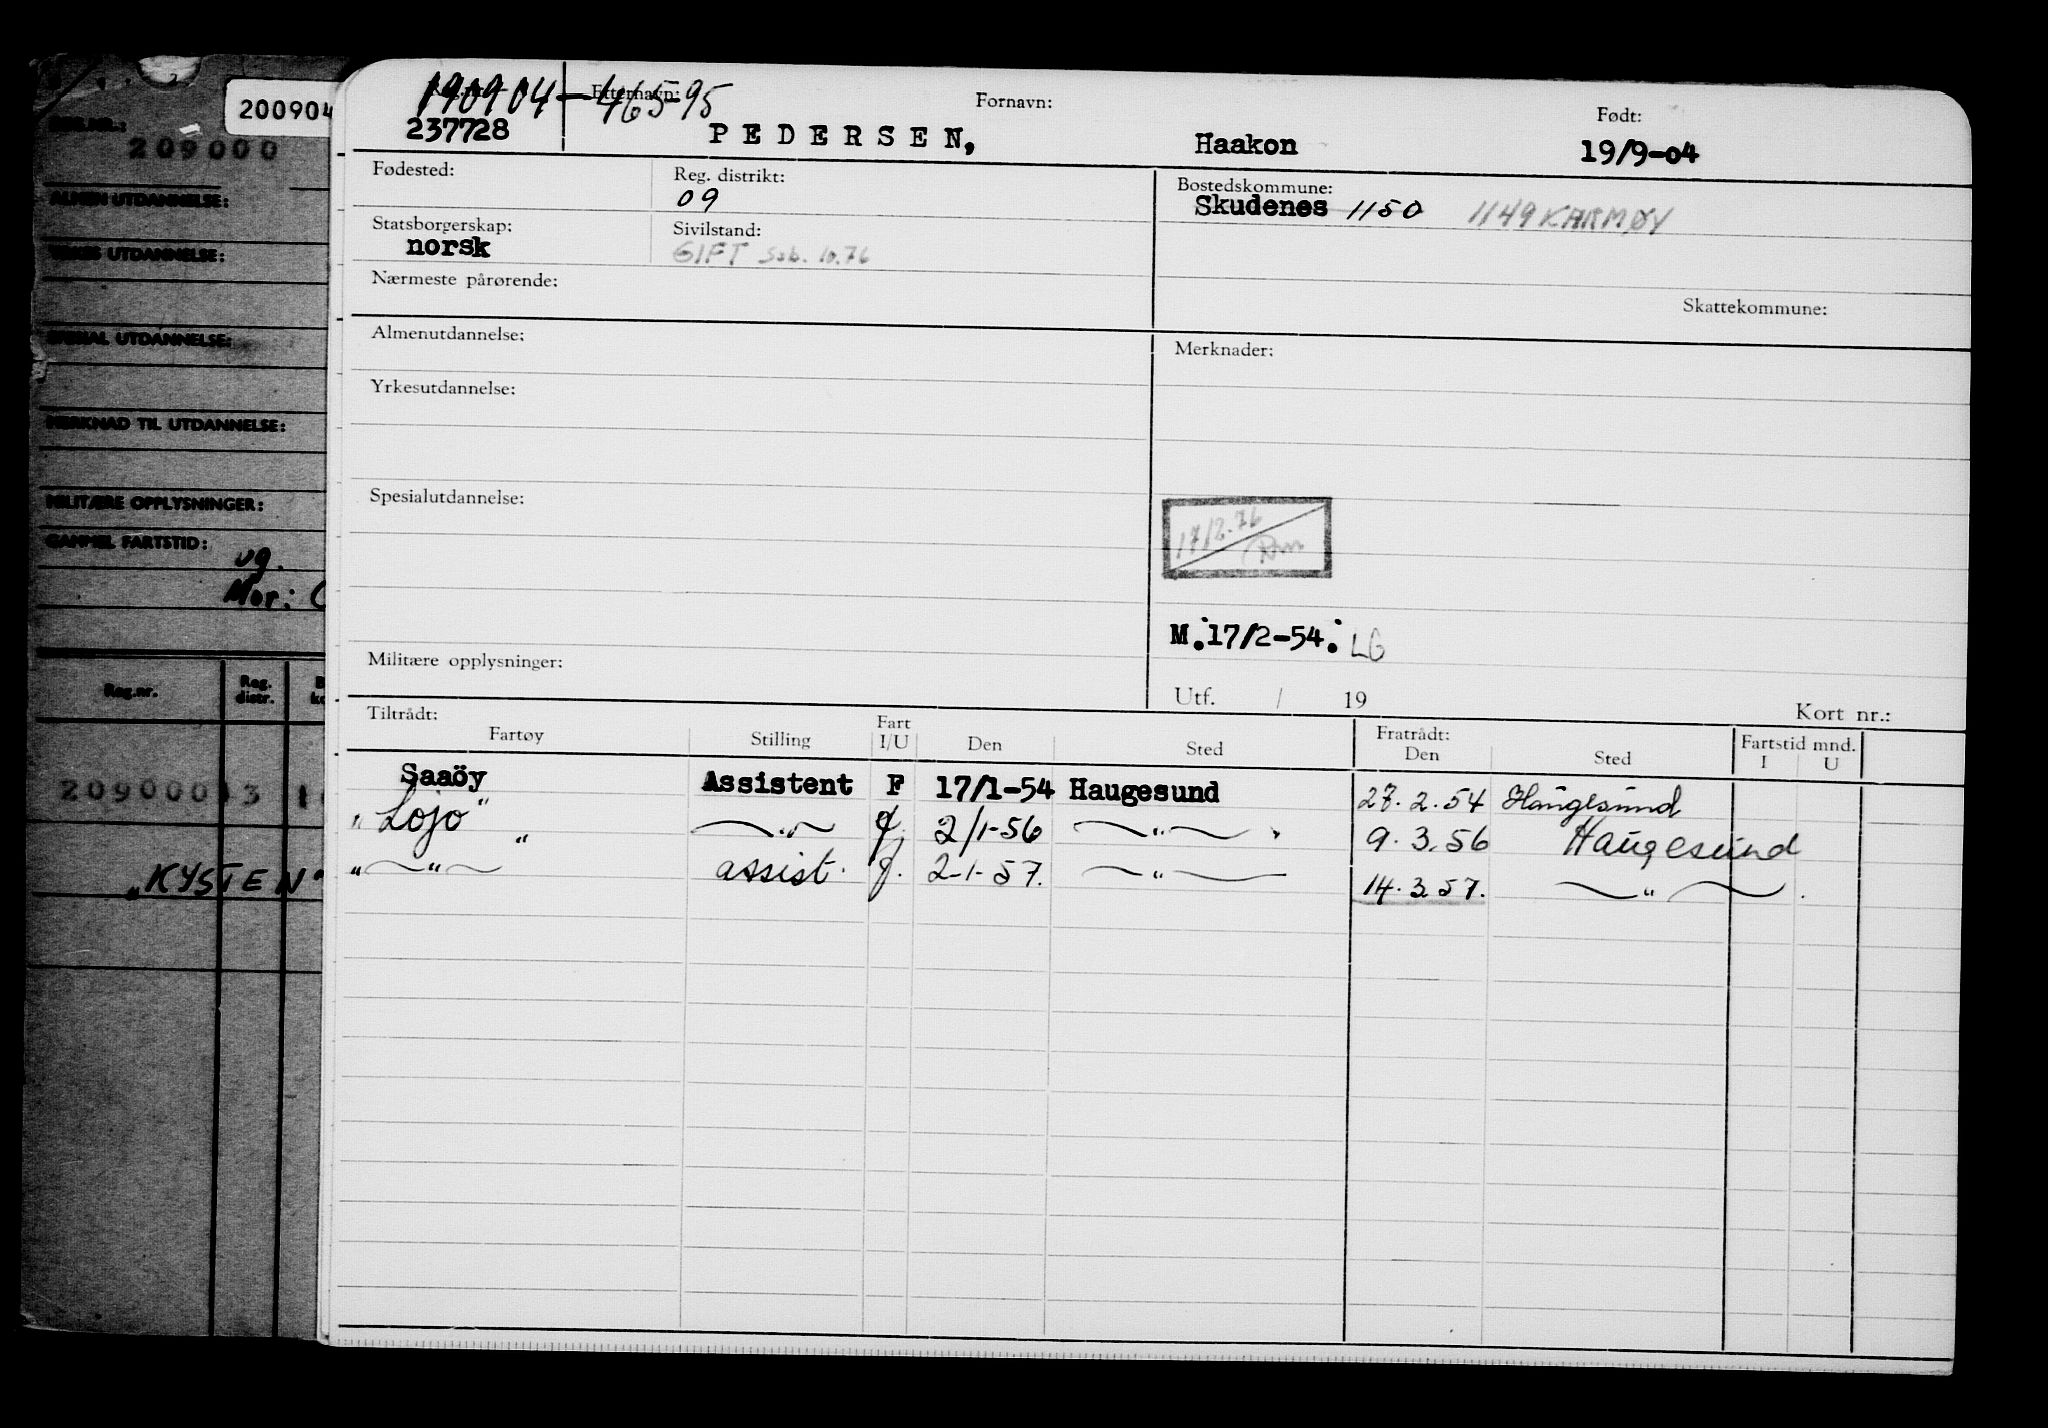 200904
REG.NR.:
209000
ALMEN UTDANNELSE:
YRKES UTDANNELSE:
SPESIAL UTDANNELSE:
MERKNAD TIL UTDANNELSE:
MILITÆRE OPPLYSNINGER:
GAMMEL FARTSTID:
09.
Mor:
Reg.nr. Reg. distr.
209000 13
"KYSTEN"
190904-46595
Etternavn: Fornavn: Født:
237728 PEDERSEN, Haakon 19/9-04
Fødested: Reg. distrikt: Bostedskommune:
09 Skudenes 1150 1149 KARMØY
Statsborgerskap: Sivilstand:
norsk GIFT Ssb. 10.76
Nærmeste pårørende:
Skattekommune:
Almenutdannelse: Merknader:
Yrkesutdannelse:
Spesialutdannelse:
17/2-76
M.17/2-54. LG
Militære opplysninger:
Utf. / 19 Kort nr.:
Tiltrådt: Fratrådt:
Fartøy Stilling Fart I/U Den Sted Den Sted Fartstid mnd. I U
Saaöy Assistent F 17/1-54 Haugesund 27.2.54 Haugesund
"Lojo" —"— f. 2/1-56 —"— 9.3.56 Haugesund
"—"— assist. f. 2-1-57. —"— 14.3.57. —"—.